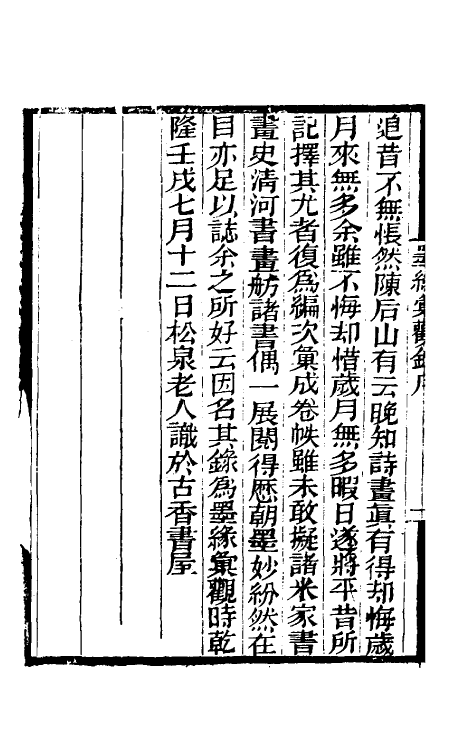 墨緣彙觀錄序
追昔不無悵然陳后山有云晚知詩畫眞有得却悔歲
月來無多余雖不悔却惜歲月無多暇日遂將平昔所
記擇其尤者復爲編次彙成卷帙雖未敢擬諸米家書
畫史清河書畫舫諸書偶一展閱得歷朝墨妙紛然在
目亦足以誌余之所好云因名其錄爲墨緣彙觀時乾
隆壬戌七月十二日松泉老人識於古香書屋